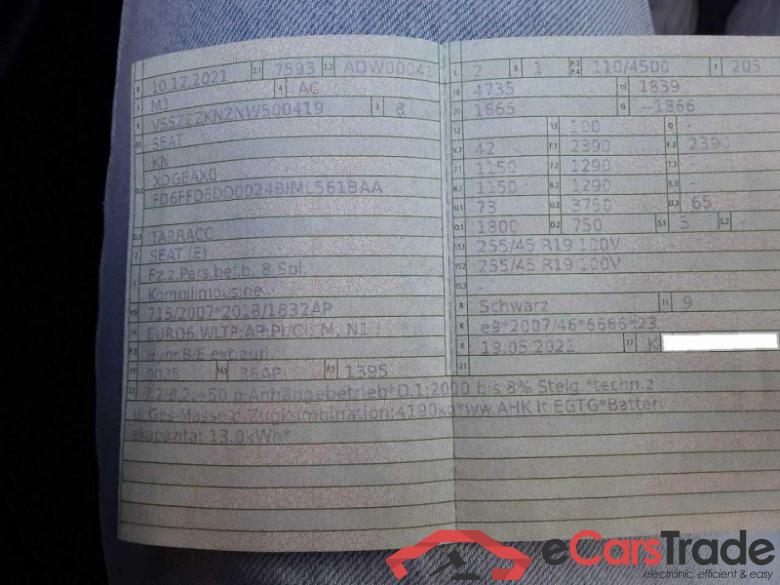 B 10.12.2021 2.1 7593 2.2 ADW00041
J M1 4 AC
E VSSZZZKNZNW500419 3 8
D.1 SEAT
KN
D.2 XDGEAX0
FD6FFD6DD0024BIML561BAA
D.3 TARRACO
2 SEAT (E)
5 Fz.z.Pers.bef.b. 8 Spl.
Kombilimousine
V.9 715/2007*2018/1832AP
14 EURO6 WLTP-AP-PI/CI, M, N1
P.3 Hybr.B/E ext.aufl.
10 0035 14.1 36AP P.1 1395
L 2 9 1 P.2 P.4 110/4500 T 205
18 4735 19 1839
20 1665 G -1866
12 13 100 Q -
V.7 42 F.1 2390 F.2 2390
7.1 1150 7.2 1290 7.3 -
8.1 1150 8.2 1290 8.3 -
U.1 73 U.2 3750 U.3 65
O.1 1800 O.2 750 S.1 5 S.2 -
15.1 255/45 R19 100V
15.2 255/45 R19 100V
15.3 -
R Schwarz 11 9
K e9*2007/46*6666*23
6 19.05.2021 17 K
21
22 7.2,8.2:+50 b.Anhängebetrieb*O.1:2000 bis 8% Steig.*techn.z
ul.Ges-Masse d.Zugkombination:4190kg*ww.AHK lt.EGTG*Batteri
ekapazität 13,0kWh*
eCarsTrade
electronic, efficient & easy